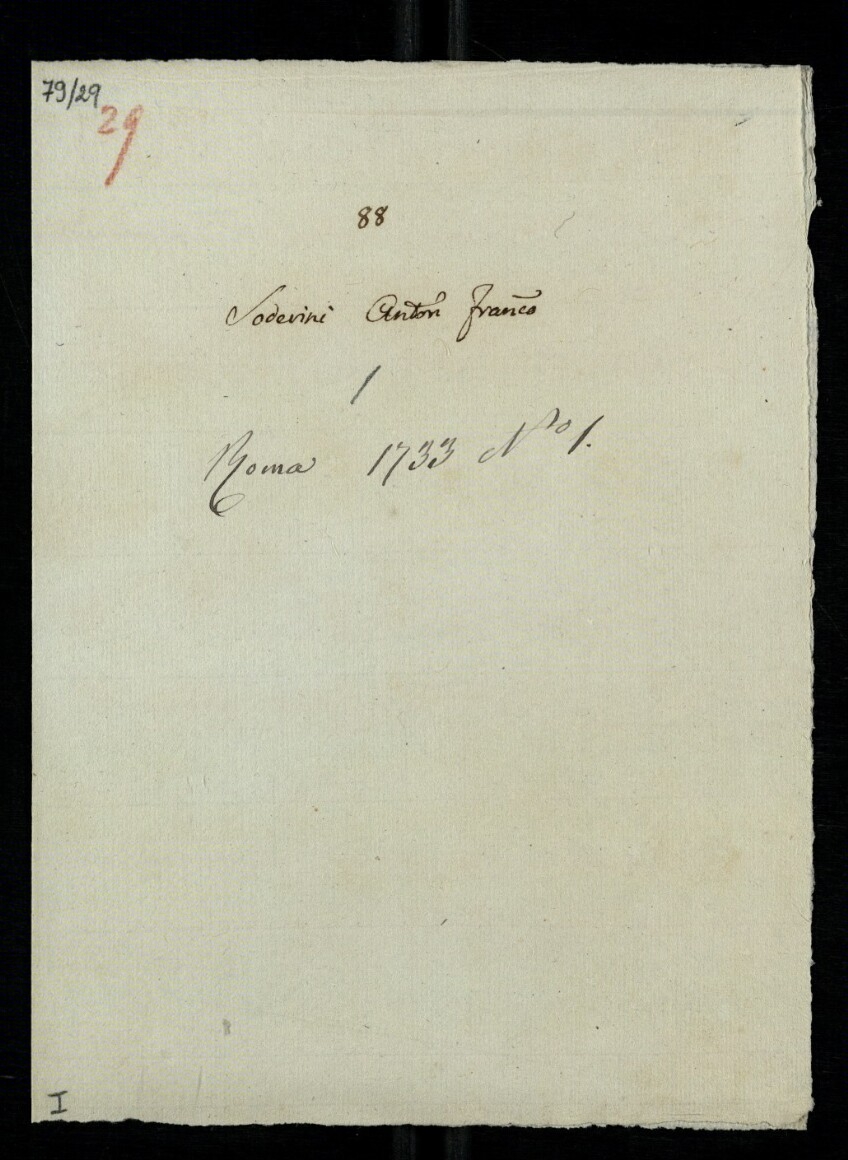 79/29
29
88
Soderini Anton Franco
1
Roma 1733 No 1.
I